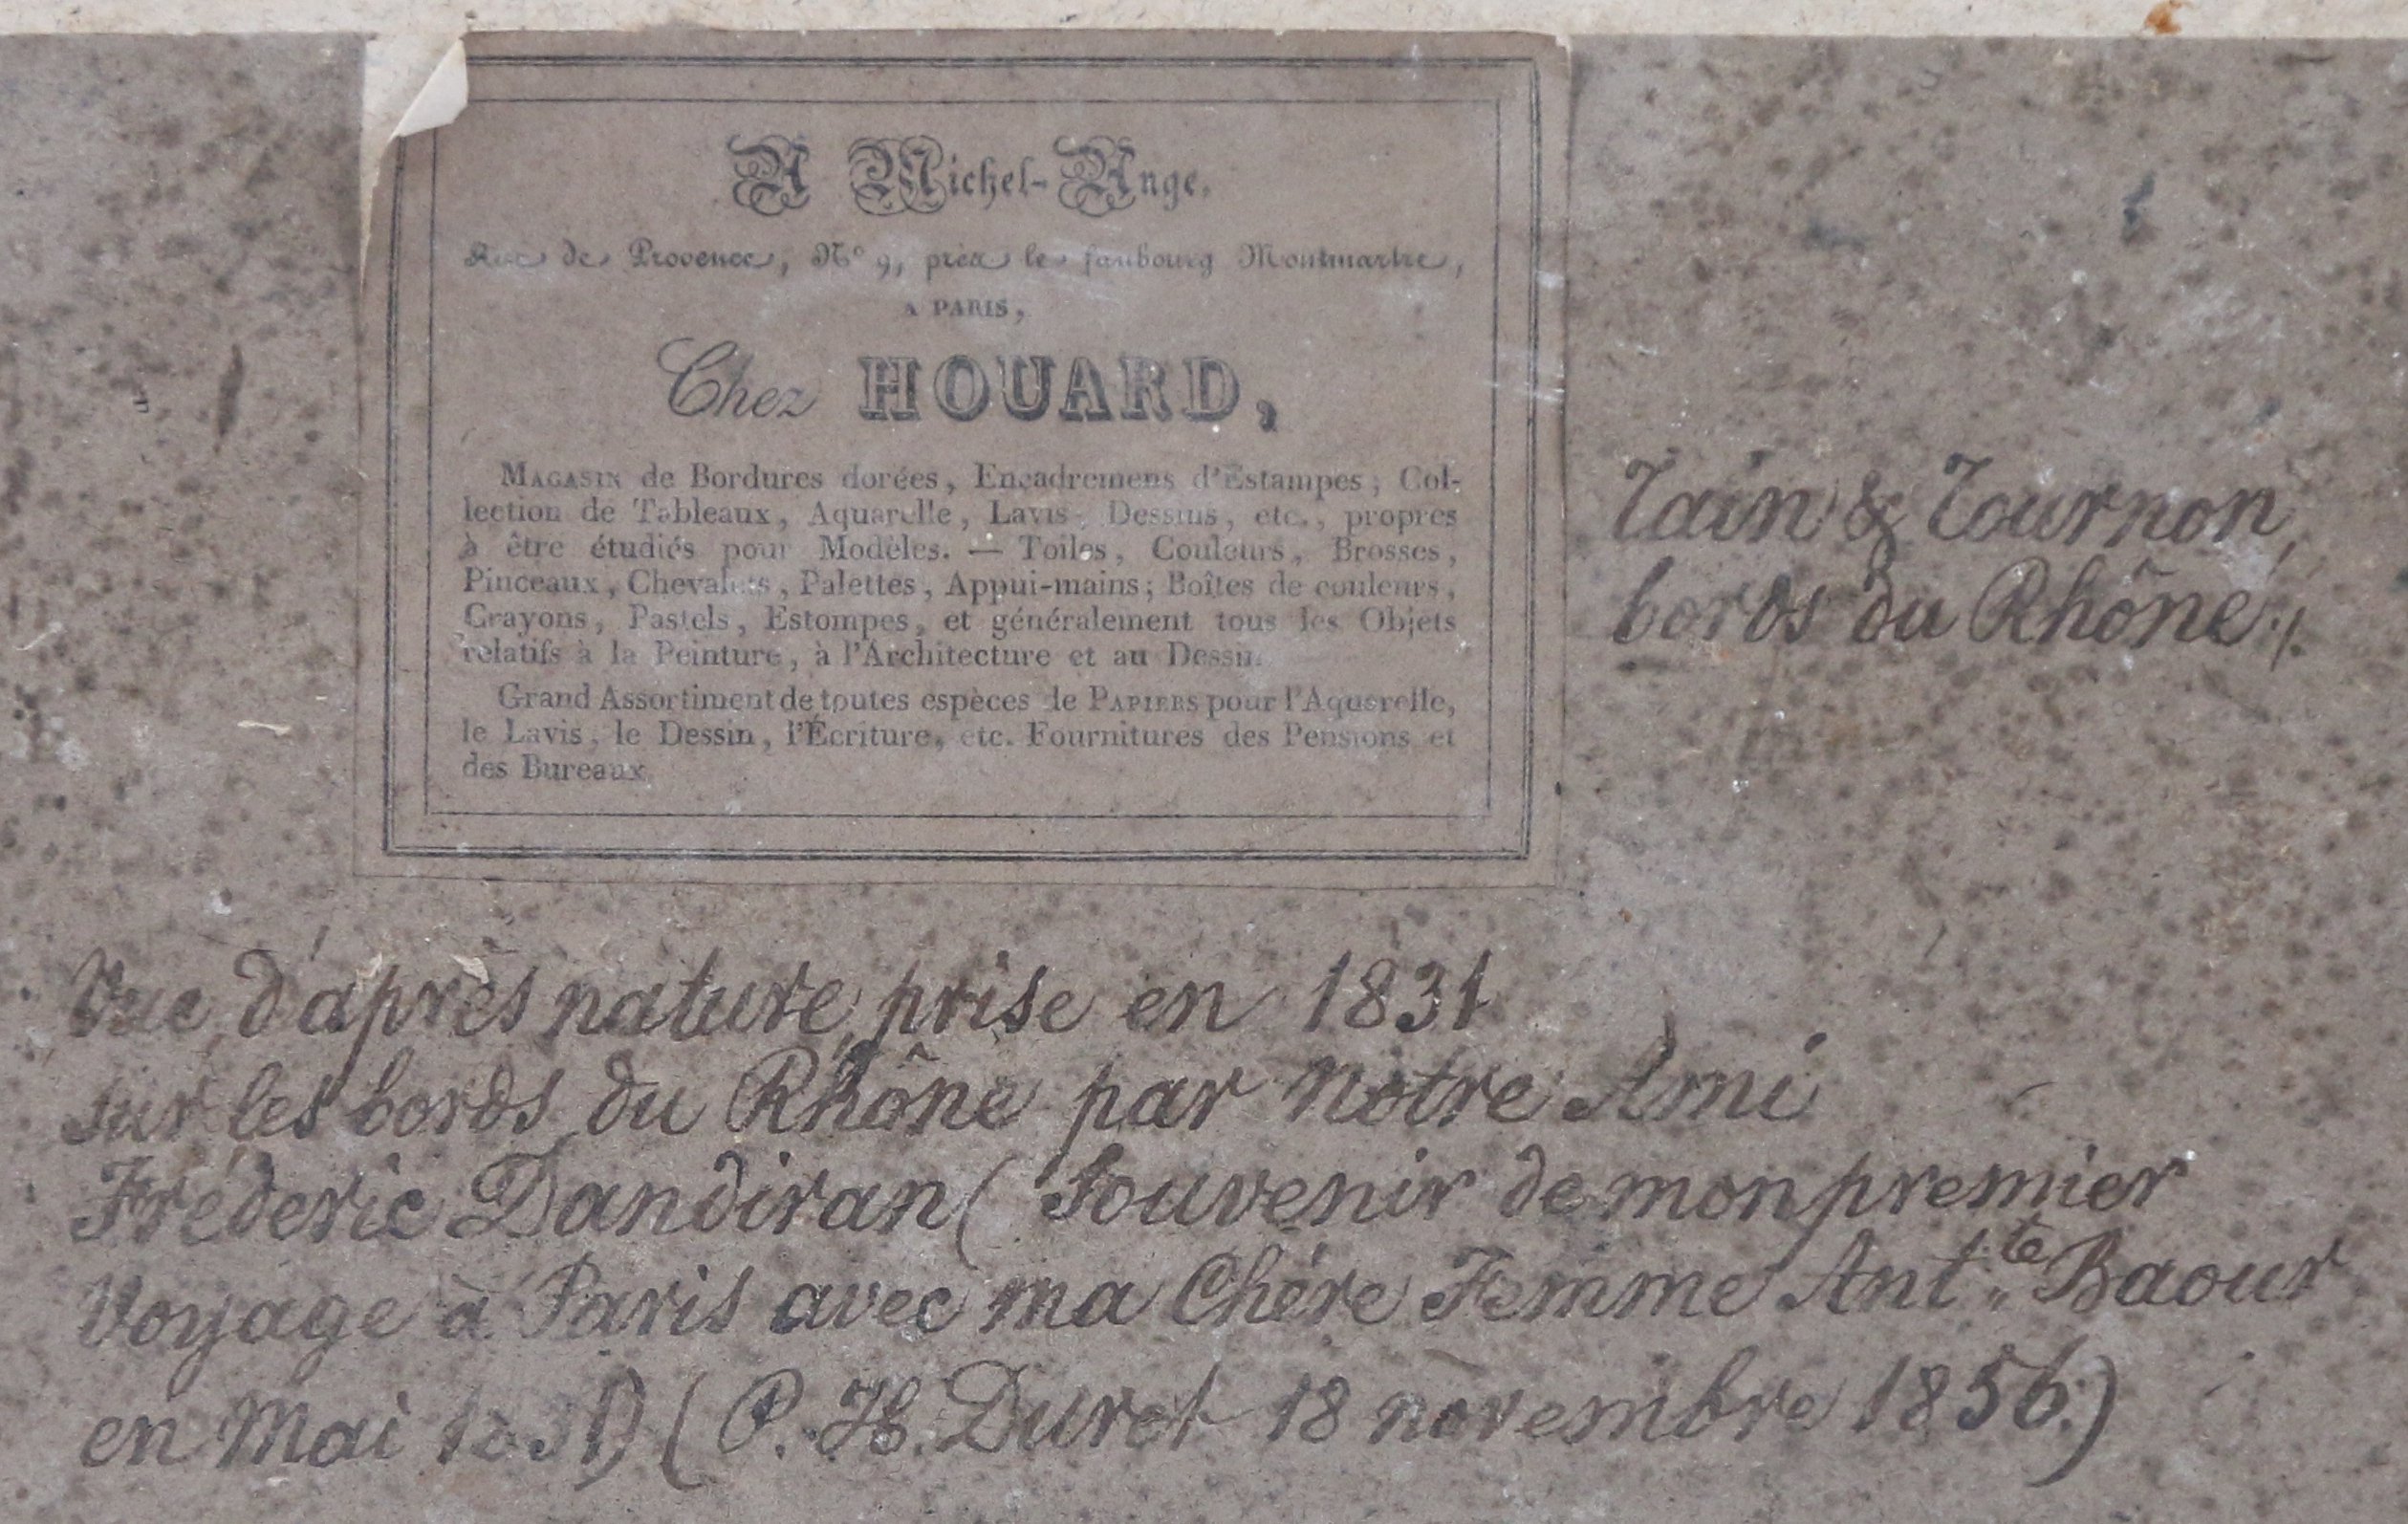 A Michel-Ange.
Rue de Provence, N° 9, près le faubourg Montmartre,
A PARIS,
Chez HOUARD,
MAGASIN de Bordures dorées, Encadremens d'Estampes; Col-
lection de Tableaux, Aquarelle, Lavis, Dessins, etc., propres
à être étudiés pour Modèles. — Toiles, Couleurs, Brosses,
Pinceaux, Chevalets, Palettes, Appui-mains; Boîtes de couleurs,
Crayons, Pastels, Estompes, et généralement tous les Objets
relatifs à la Peinture, à l'Architecture et au Dessin.
Grand Assortiment de toutes espèces de PAPIERS pour l'Aquarelle,
le Lavis, le Dessin, l'Écriture, etc. Fournitures des Pensions et
des Bureaux.
Tain & Tournon,
bords du Rhône./.
Vue d'après nature, prise en 1831
sur les bords du Rhône par notre Ami
Fréderic Dandiran (Souvenir de mon premier
Voyage à Paris avec ma Chére Femme Ant.te Baour
en Mai 1831) (P. H. Duret 18 novembre 1856.)